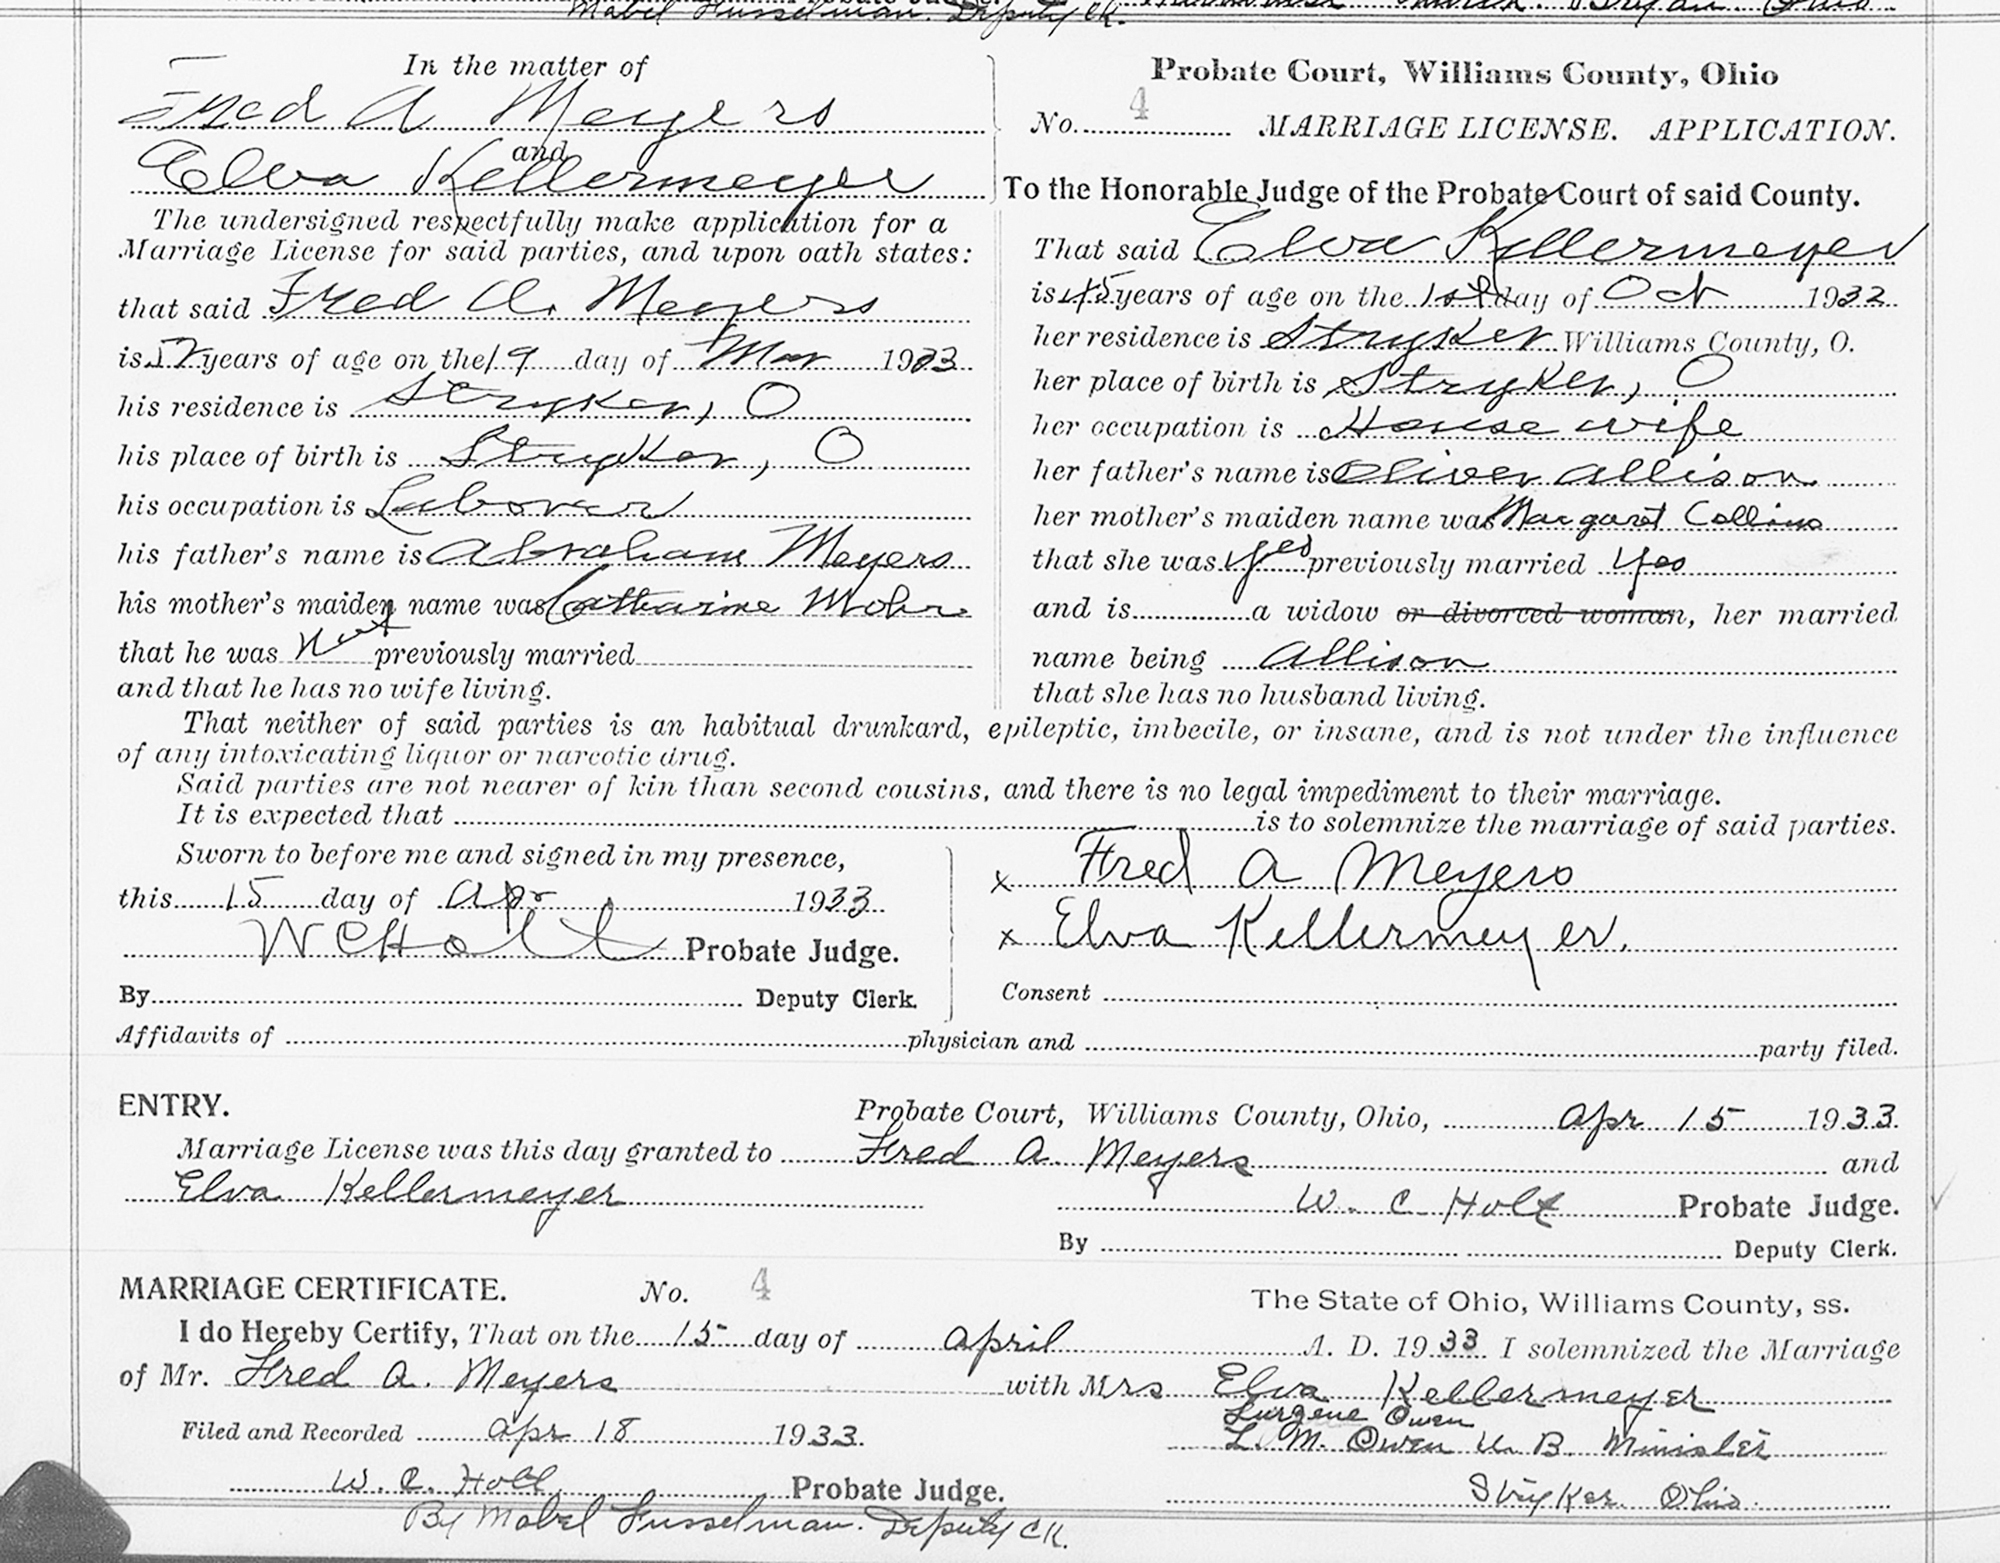 Mabel Fusselman. Deputy Ck.
Bryan Ohio
In the matter of
Fred A Meyers
and
Elva Kellermeyer
The undersigned respectfully make application for a
Marriage License for said parties, and upon oath states:
that said Fred A. Meyers
is 52 years of age on the 19 day of Mar 1933
his residence is Stryker, O
his place of birth is Stryker, O
his occupation is Laborer
his father's name is Abraham Meyers
his mother's maiden name was Catharine Mohr
that he was not previously married
and that he has no wife living.
Probate Court, Williams County, Ohio
No. 4 MARRIAGE LICENSE. APPLICATION.
To the Honorable Judge of the Probate Court of said County.
That said Elva Kellermeyer
is 45 years of age on the 1st day of Oct 1932
her residence is Stryker Williams County, O.
her place of birth is Stryker, O
her occupation is House wife
her father's name is Oliver Allison
her mother's maiden name was Margaret Collins
that she was yes previously married yes
and is a widow or divorced woman, her married
name being Allison
that she has no husband living.
That neither of said parties is an habitual drunkard, epileptic, imbecile, or insane, and is not under the influence
of any intoxicating liquor or narcotic drug.
Said parties are not nearer of kin than second cousins, and there is no legal impediment to their marriage.
It is expected that is to solemnize the marriage of said parties.
Sworn to before me and signed in my presence,
this 15 day of Apr 1933
W C Holt Probate Judge.
By Deputy Clerk.
x Fred A Meyers
x Elva Kellermeyer.
Consent
Affidavits of physician and party filed.
ENTRY. Probate Court, Williams County, Ohio, Apr 15 1933
Marriage License was this day granted to Fred A. Meyers and
Elva Kellermeyer
W. C. Holt Probate Judge.
By Deputy Clerk.
MARRIAGE CERTIFICATE. No. 4 The State of Ohio, Williams County, ss.
I do Hereby Certify, That on the 15 day of April A. D. 1933 I solemnized the Marriage
of Mr. Fred A. Meyers with Mrs Elva Kellermeyer
Lurgene Owen
Filed and Recorded Apr 18 1933. L. M. Owen U. B. Minister
W. C. Holt Probate Judge. Stryker Ohio.
By Mabel Fusselman. Deputy Ck.